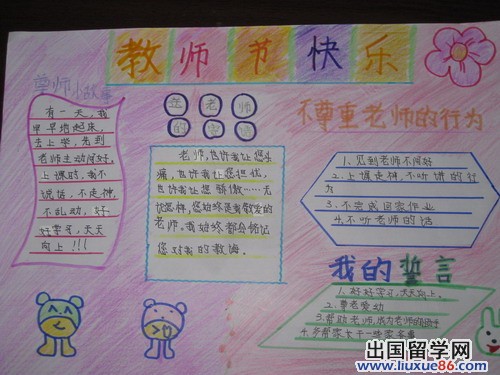 教师节快乐
尊师小故事
有一天，我
早早地起床，
去上学，先到
老师主动问好，
上课时，我不
说话，不走神，
不乱动，好
好学习，天天
向上！！！
老师
的
老师，也许我让您头
痛，也许我让您担忧，
也许我让您骄傲……无
论怎样，您始终是我敬爱的
老师。我始终都会铭记
您对我的教诲。
不尊重老师的行为
1.见到老师不问好
2.上课走神，不听讲的行
为
3.不完成回家作业
4.不听老师的话
我的誓言
1.好好学习，天天向上。
2.尊老爱幼
3.帮助老师，成为老师的助手
4.多帮家长干一些家务事
出国留学网
www.liuxue86.com